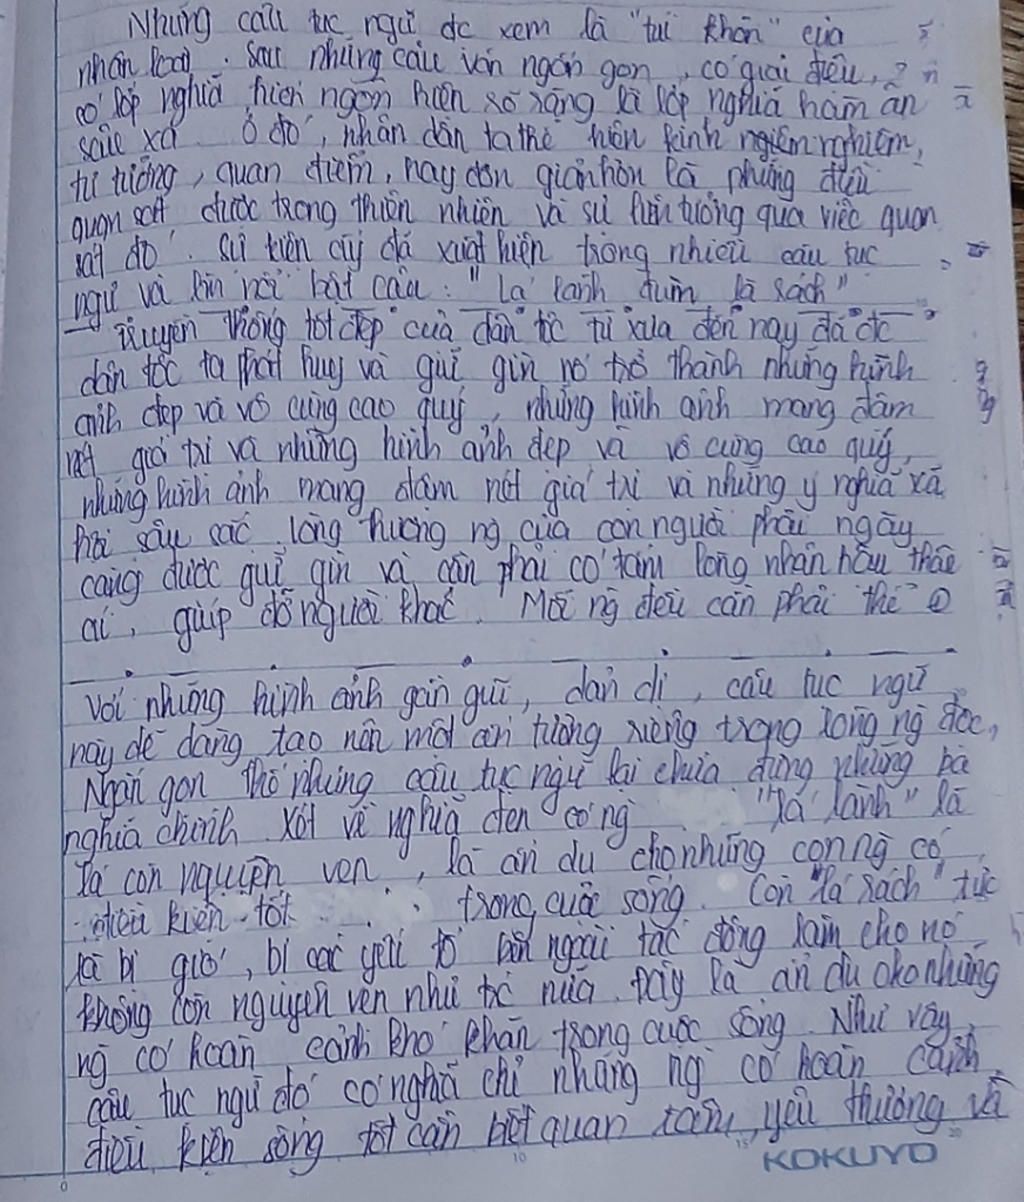 Những câu tục ngữ đc xem là "túi khôn" của
nhân loại. Sau những câu văn ngắn gọn, có giai điệu,
có lớp nghĩa hiển ngôn hiện rõ ràng là lớp nghĩa hàm ẩn
sâu xa. Ở đó, nhân dân ta thể hiện kinh ngiêm nghiệm,
tư tưởng, quan điểm, hay đơn giản hơn là những điều
quan sát được trong thiên nhiên và sự liên tưởng qua việc quan
sát đó. Sự kiện ấy đã xuất hiện trong nhiều câu tục
ngữ và lên nổi bật câu: "Lá lành đùm lá rách"
Truyền thống tốt đẹp của dân tộc từ xưa đến nay đã đc
dân tộc ta phát huy và giữ gìn nó trở thành những hình
ảnh đẹp và vô cùng cao quý, những hình ảnh mang đậm
nét giá trị và những hình ảnh đẹp và vô cùng cao quý,
những hình ảnh mang đậm nét giá trị và những ý nghĩa xã
hội sâu sắc. lòng thương ng của con người phải ngày
càng được giữ gìn và cần phải có tấm lòng nhân hậu thác
ái, giúp đỡ người khác. Mỗi ng đều cần phải thế
Với những hình ảnh gần gũi, dản dị, câu tục ngữ
này dễ dàng tạo nên một ấn tượng riêng trong lòng ng đọc,
Ngắn gọn thế nhưng câu tục ngữ lại chứa đựng những bà
nghĩa chính. Xét về nghĩa đen có ng "lá lành" là
lá còn nguyên vẹn, là ẩn dụ cho những con ng có
điều kiện tốt trong cuộc sống. Còn "lá rách" tức
là bị gió, bị các yếu tố bên ngoài tác động làm cho nó
không còn nguyên vẹn như trc nữa. Đây là ẩn dụ cko những
ng có hoàn cảnh khó khăn trong cuộc sống. Như vậy,
câu tục ngữ đó có nghĩa chỉ những ng có hoàn cảnh
điều kiện sống tốt cần biết quan tâm, yêu thương và
KOKUYO